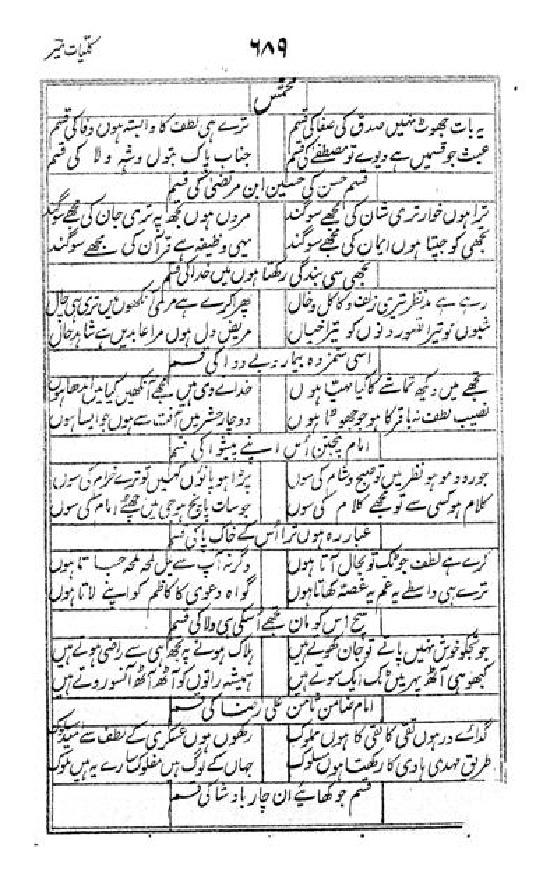 کلیات میر
۶۸۹
مخمس
یہ بات جھوٹ نہیں صدق کی صفا کی قسم ترے ہی لطف کا وابستہ ہوں وفا کی قسم
عبث جو قسمیں ہے دیوے تو مصطفےٰ کی قسم جناب پاک بتول و شہ ولا کی قسم
قسم حسن کی حسین ابن مرتضیٰ کی قسم
ترا ہوں خوار تری شان کی مجھے سوگند مروں ہوں تجھ پہ تری جان کی مجھے سوگند
تجھی کو جیتا ہوں ایمان کی مجھے سوگند یہی وظیفہ ہے قرآن کی مجھے سوگند
تجھی سی بندگی رکھتا ہوں میں خدا کی قسم
رہے ہے مدنظر تیری زلف و کاکل و خال پھرا کرے ہے مرے آنکھوں میں تری ہی چال
شبوں کو تیرا تصور دنوں کو تیرا خیال مریض دل ہوں مرا عابدیں ہے شاہد حال
اسی ستمزدہ بیمار بے دوا کی قسم
تجھے میں دیکھ تماشے کا کیا بہت ہوں خدا نے دی ہیں مجھے آنکھیں کیا میں اندھا ہوں
نصیب لطف نہ باقر کا ہو جو جھوٹا ہوں دوچار حشر میں آفت سے ہوں جو ایسا ہوں
امام پنجمن اس اپنے پیشوا کی قسم
جو رد و مو ہو نظر میں تو صبح و شام کی سوں پڑا ہو پانوں کہیں تو ترے خرام کی سوں
کلام ہو کسی سے تو مجھے کلام کی سوں جو سات پانچ ہو جی میں چھٹے امام کی سوں
غبار رہ ہوں ترا اس کے خاک پا کی قسم
کرے ہے لطف جو ٹک تو بحال آتا ہوں وگرنہ آپ سے پل لمحہ لمحہ جاتا ہوں
ترے ہی واسطے یہ غم یہ غصہ کھاتا ہوں گواہ دعوی کا کاظم کو اپنے لاتا ہوں
سچ اس کو مان تجھے اسکی سی ولا کی قسم
جو تجکو خوش نہیں پاتے تو جان کھوتے ہیں ہلاک ہونے پہ تجھ راضی سے راضی ہوتے ہیں
کبھو ہی آٹھ پہر میں ٹک ایک سوتے ہیں ہمیشہ راتوں کو آٹھ آٹھ آنسو روتے ہیں
امام ضامن ثامن علی رضا کی قسم
گدائے در ہوں تقی کا نقی کا ہوں مملوک رکھوں ہوں عسکری کے لطف سے
طریق مہدی ہادی کا رکھتا ہوں سلوک جہاں کے لوگ ہیں مفلوک سارے یہ ہیں ملوک
قسم جو کھائیے ان چار بادشا کی قسم